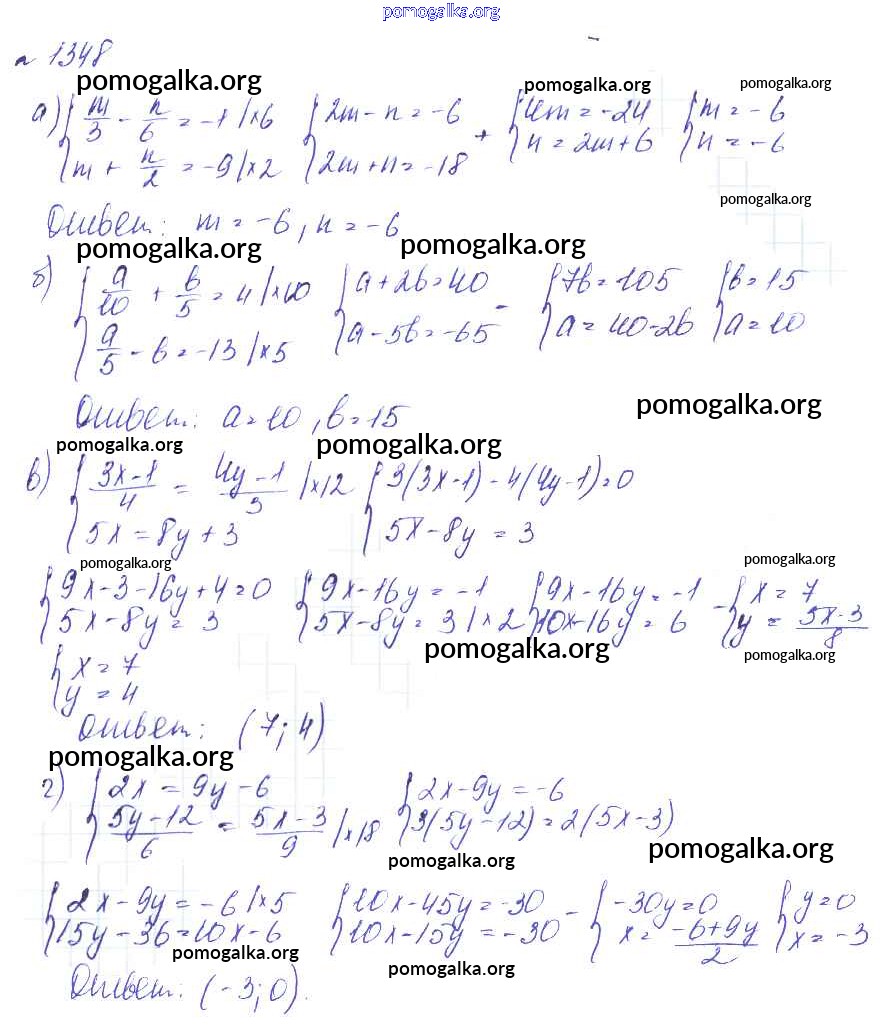 pomogalka.org
№ 1348
pomogalka.org pomogalka.org pomogalka.org
а) { m/3 - n/6 = -1 |×6 { 2m - n = -6 + { 4m = -24 { m = -6
m + n/2 = -9 |×2 2m + n = -18 n = 2m + 6 n = -6
pomogalka.org
Ответ: m = -6, n = -6
pomogalka.org pomogalka.org
б) { a/10 + b/5 = 4 |×10 { a + 2b = 40 - { 7b = 105 { b = 15
a/5 - b = -13 |×5 a - 5b = -65 a = 40 - 2b a = 10
Ответ: a = 10, b = 15
pomogalka.org
pomogalka.org pomogalka.org
в) { (3x-1)/4 = (4y-1)/3 |×12 { 3(3x-1) - 4(4y-1) = 0
5x = 8y + 3 5x - 8y = 3
pomogalka.org pomogalka.org
{ 9x - 3 - 16y + 4 = 0 { 9x - 16y = -1 { 9x - 16y = -1 - { x = 7
5x - 8y = 3 5x - 8y = 3 |×2 10x - 16y = 6 y = (5x-3)/8
pomogalka.org pomogalka.org
{ x = 7
y = 4
Ответ: (7; 4)
pomogalka.org
г) { 2x = 9y - 6 { 2x - 9y = -6
(5y-12)/6 = (5x-3)/9 |×18 3(5y - 12) = 2(5x - 3)
pomogalka.org pomogalka.org
{ 2x - 9y = -6 |×5 { 10x - 45y = -30 - { -30y = 0 { y = 0
15y - 36 = 10x - 6 10x - 15y = -30 x = (-6+9y)/2 x = -3
pomogalka.org pomogalka.org
Ответ: (-3; 0).